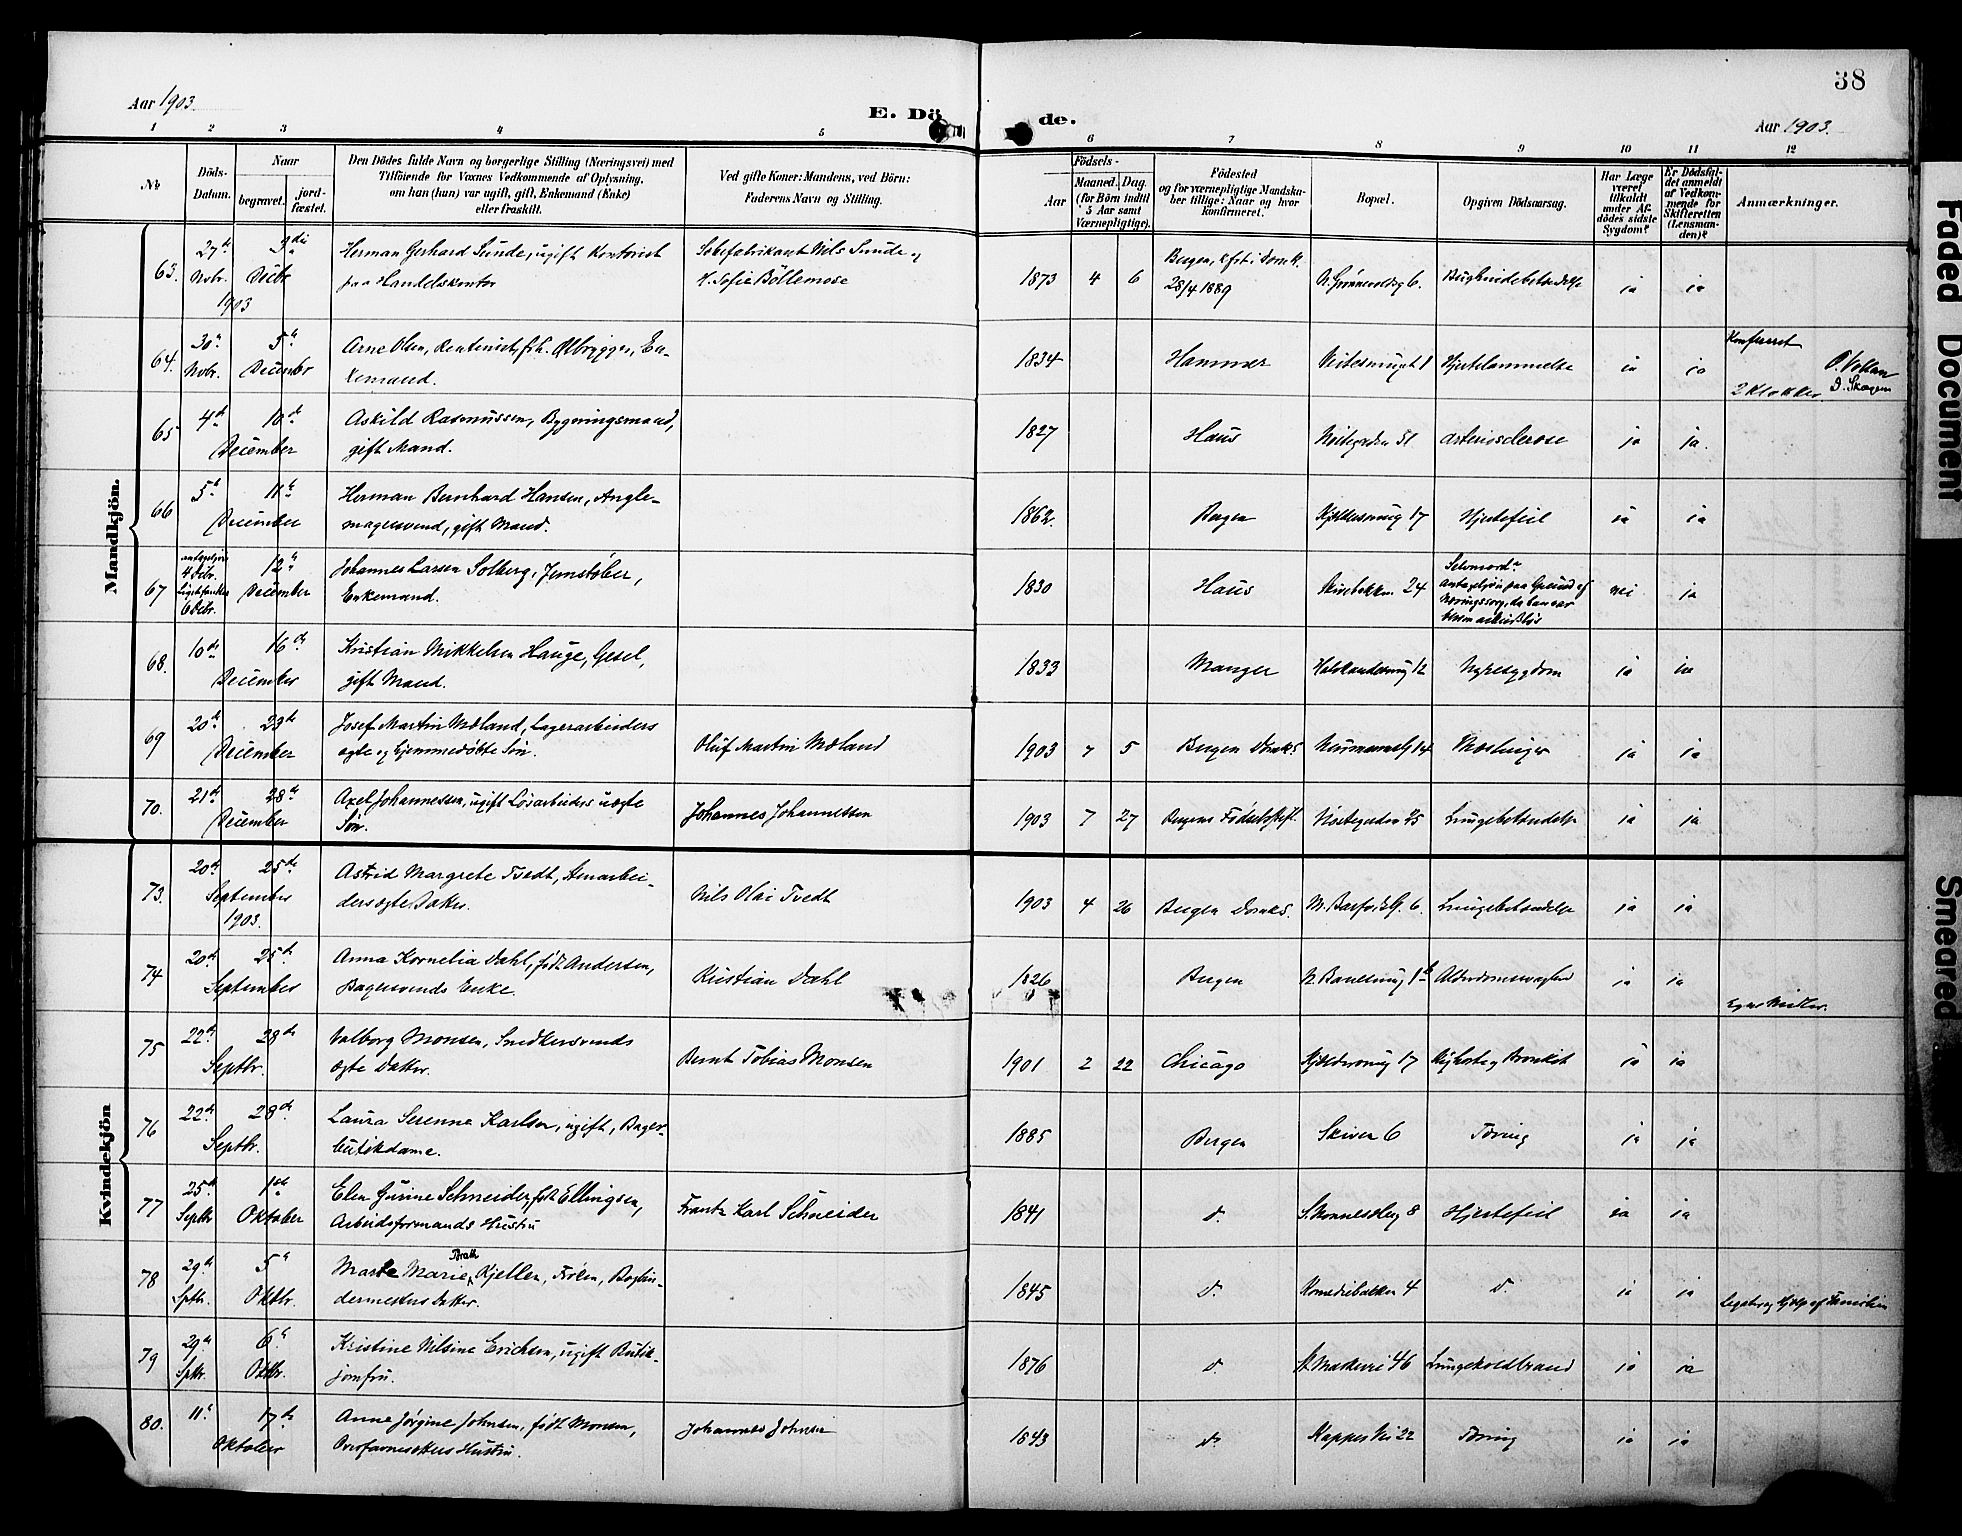 38
Aar 1903.
E. Dö de.
Aar 1903.
1 2 3 4 5 6 7 8 9 10 11 12
No
Döds-Datum.
Naar
begravet.
jord-fæstet.
Den Dödes fulde Navn og borgerlige Stilling (Næringsvei) med
Tilföiende for Voxnes Vedkommende af Oplysning,
om han (hun) var ugift, gift, Enkemand (Enke)
eller fraskilt.
Ved gifte Koner: Mandens, ved Börn:
Faderens Navn og Stilling.
Födsels-
Aar
Maaned. Dag.
(for Börn indtil
5 Aar samt
Værnepligtige).
Födested
og for værnepligtige Mandska-
ber tillige: Naar og hvor
konfirmeret.
Bopæl.
Opgiven Dödsaarsag.
Har Læge
været
tilkaldt
under Af-
dödes sidste
Sygdom?
Er Dödsfal-
det anmeldt
af Vedkom-
mende for
Skifteretten
(Lensman-
den)?
Anmærkninger.
Mandkjön.
63. 27de Novbr. 1903 3die Decbr
Herman Gerhard Sunde, ugift Kontorist
paa Handelskontor
Sæbefabrikant Nils Sunde og
H. Sofie Böllemose
1873 4 6
Bergen, kft. i Domk.
28/4 1889
Bughindebetændelse
ja ja
64. 30te Novbr. 5te December
Arne Olsen, Rentenist, frh. Ølbrygger, En-
kemand.
1834 Hammer Hjertelammelse ja ja
Konfereret
2 Klokker.
65 4de 10de December
Askild Rasmussen, Bygningsmand,
gift Mand.
1827 Haus Nøstegaden 51 Arteriosclerose ja ja.
66 5te 11te December
Herman Bernhard Hansen, Angle-
magersvend, gift Mand.
1862. Bergen 17 Hjertefeil ja ja
67 antagelig 4 Decbr. Liget funden 6 Decbr. 12te December
Johannes Larsen Solberg, Jernstøber,
Enkemand.
1830 Haus Skivebakken 24
Selvmord
antagelig paa Grund af
Næringssorg, da han var
bleven arbeidsløs
nei ja
68. 10de 16de December
Kristian Mikkelsen Hauge, Gesel,
gift Mand.
1833 Manger 12 Nyresygdom ja ja
69 20de 23de December
Josef Martin Mæland, Lagerarbeiders
ægte og hjemmedøbte Søn.
Oluf Martin Mæland
1903 7 5 Bergen Domks. Neumannsg 14 Mæslinger ja ja
70. 21de 28de December
Axel Johannessen, ugift Løsarbeiders uægte
Søn.
Johannes Johannessen
1903 7 27 Bergens Fødselsstift. Nøstegaden 45 Lungebetændelse ja ja
Kvindekjön
73. 20de 25de September 1903.
Astrid Margrete Tvedt, Stenarbei-
ders ægte Datter.
Nils Olai Tvedt
1903 4 26 Bergen Domks. 6. Lungebetændelse ja ja
74 20de 25de September
Anna Kornelia Dahl, født Andersen,
Bagersvends Enke.
Kristian Dahl
1826 Bergen Alderdomssvaghed ja ja
Egne Midler.
75 22de 28de Septbr.
Valborg Monsen, Snedkersvends
ægte Datter.
Bernt Tobias Monsen
1901 2 22 Chicago 17 Kighoste og Bronkit ja ja
76 22de 28de Septbr.
Laura Serenne Karlsen, ugift, Bager-
butikdame.
1885 Bergen Skiven 6 Tæring ja ja
77 25de Septbr 1ste Oktober
Elen Gurine Schneider, født Ellingsen,
Arbeidsformands Hustru
Frantz Karl Schneider
1841 do. 8 Hjertefeil ja ja
78 29de Sptbr. 5te Oktbr.
Brath
Marie Kjeller, Frøken, Bogbin-
dermesters Datter.
1845 do. Komediebakken 4 do. ja ja
Legater og Hjælp af Familien
79 29de Sptbr. 6te Oktbr.
Kristine Nilsine Erichsen, ugift Butik-
jomfru.
1876 do. 46 Lungekoldbrand ja ja
80. 11te 17de Oktober
Anne Jørgine Johnsen, født Monsen,
Hustru.
Johannes Johnsen
1843 do. 22 Tæring ja ja
Faded Document
Smeared